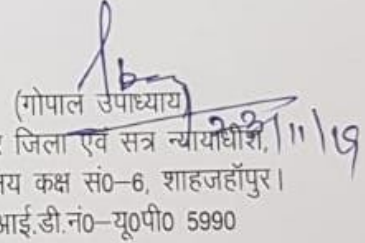 (गोपाल उपाध्याय)
जिला एवं सत्र न्यायाधीश,
कक्ष सं0–6, शाहजहॉपुर।
आई.डी.नं0–यू0पी0 5990